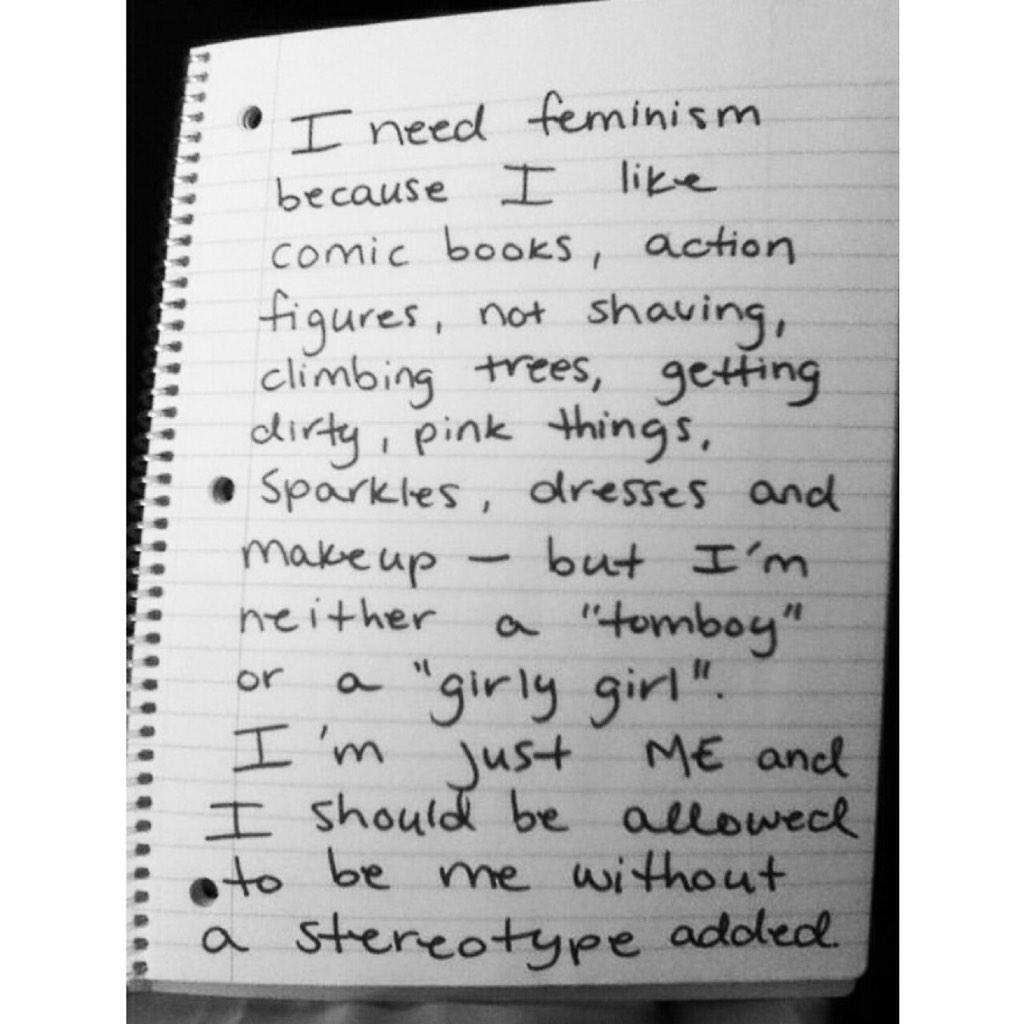 I need feminism
because I like
comic books, action
figures, not shaving,
climbing trees, getting
dirty, pink things,
sparkles, dresses and
makeup – but I'm
neither a "tomboy"
or a "girly girl".
I'm just ME and
I should be allowed
to be me without
a stereotype added.